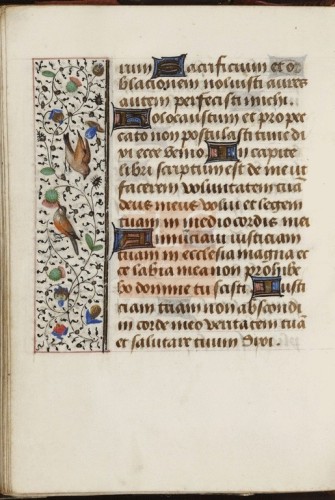 rum Sacrificium et o
blacionem noluisti aures
autem perfecisti michi.
Holocaustum et pro pec
cato non postulasti tunc di
xi ecce venio. In capite
libri scriptum est de me ut
facerem voluntatem tuā
deus meus volui et legem
tuam in medio cordis mei
Annunciavi iusticiam
tuam in ecclesia magna ec
ce labia mea non prohibe
bo domine tu scisti. Iusti
ciam tuam non abscondi
in corde meo veritatem tuā
et salutare tuum Dixi.